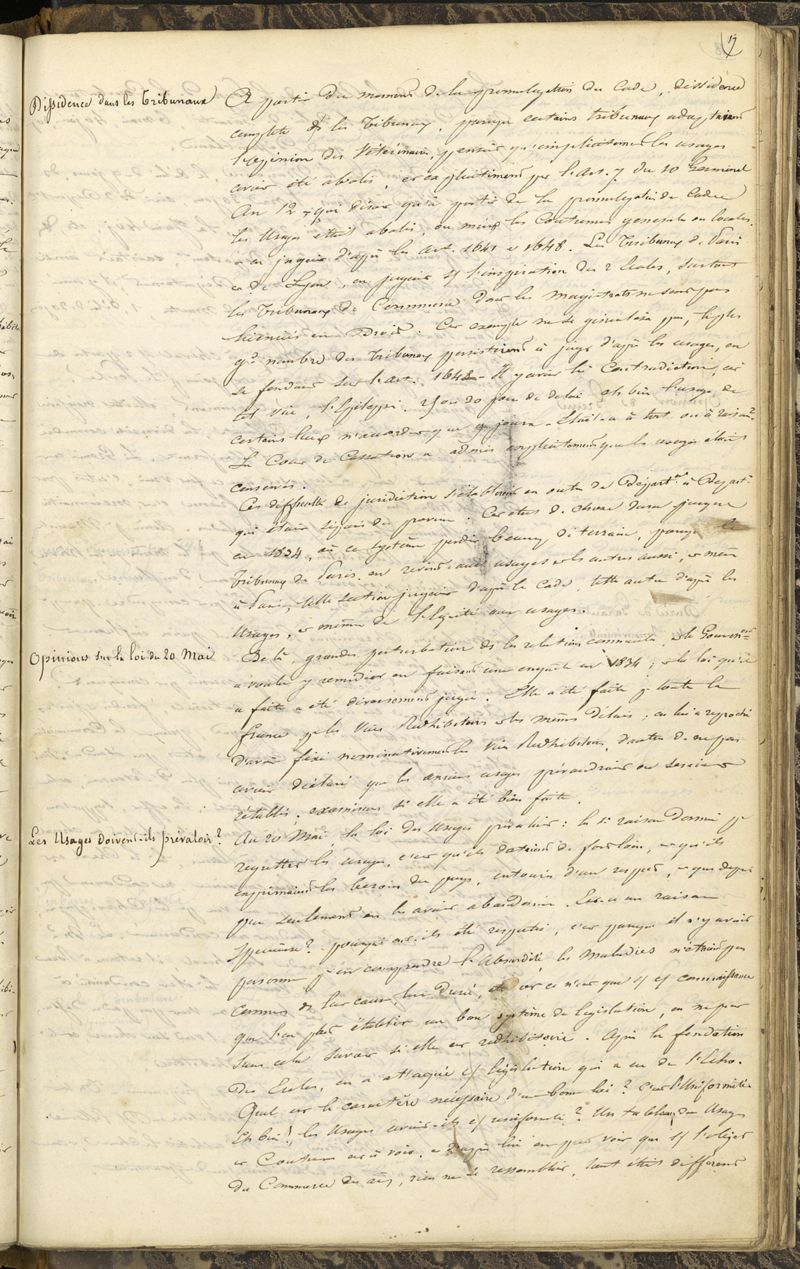 17
Dissidence dans les Tribunaux
A partir du moment de la promulgation du Code, dissidence
complète ds les Tribunaux, parceque certains tribunaux adoptaient
l'opinion des Vétérinaires, pensant qu'implicitement les usages
avaient été abolis, et explicitement par l'art. 7 du 20 Germinal
An 12, qui disait qu'à partir de la promulgation du Code
les Usages étaient abolis, ou mieux les Coutumes générales ou locales.
on jugeait d'après les art. 1641 et 1648. Les Tribunaux de Paris
et de Lyon, en jugeant ss l'inspiration des 2 Ecoles, surtout
les Tribunaux de Commerce dont les magistrats ne sont pas
licenciés en Droit. Cet exemple ne se généralisa pas, le plus
gd nombre des Tribunaux persistèrent à juger d'après les usages, en
se fondant sur l'art. 1648. Il y avait là Contradiction, car
tel vice, l'Epilepsie, 29 ou 30 jours de délai, eh bien l'usage de
certains lieux n'accordait que 9 jours. Etait-ce à tort ou à raison?
La Cour de Cassation a admis implicitement que les usages étaient
conservés.
Ces difficultés de juridiction s'établirent en outre de Départt à Départt
qui étaient
Cet état de chose dura jusque
en 1834, où ce système perdit beaucoup de terrain, parceque le
Tribunal de Paris en revint aux usages et les autres aussi, et même
à Paris, telle section jugeait d'après le Code, telle autre d'après les
Usages, et même de l'équité aux usages.
Opinions sur la loi du 20 Mai
De là, grandes perturbations ds les relations commerciales. Le Gouvernt
a voulu y remédier en faisant une enquête en 1834 ; et la loi qu'il
a faite a été diversement jugée. Elle a été faite pr toute la
France pr les Vices Redhibitoires et les mêmes Délais ; on lui a reproché
d'avoir fixé nominativement les Vices Redhibitoires, d'autres de ne pas
avoir déclaré que les anciens usages prévaudraient ou seraient
rétablis. examinons si elle a été bien faite.
Les Usages doivent-ils prévaloir?
Au 20 Mai la loi des Usages prévalut : la 1re raison donnée pr
regretter les usages, c'est qu'ils dataient de fort loin, et qu'ils
exprimaient les besoins du pays, entourés d'un respect, et que depuis
peu seulement on les avait abandonnés. Est-ce une raison
spécieuse? pourquoi ont-ils été respectés, c'est parceque il n'y avait
personne pr en comprendre l'Absurdité, les Maladies n'étaient pas
connues ds leur cause, leur Durée, etc or ce n'est que ss ces connaissances
que l'on peut établir un bon système de législation, on ne peut
sans cela savoir si elle est redhibitoire. Après la fondation
des Ecoles, on a attaqué cette législation qui a eu de l'écho.
Quel est le caractère nécessaire d'une bonne loi? C'est l'Uniformité
Eh bien! les Usages avaient-ils cette uniformité? Un tableau des Usages
et Coutumes est à voir, et d'après lui on peut voir que ss l'objet
du Commerce des anx, rien ne se ressemblait, tant étaient différents